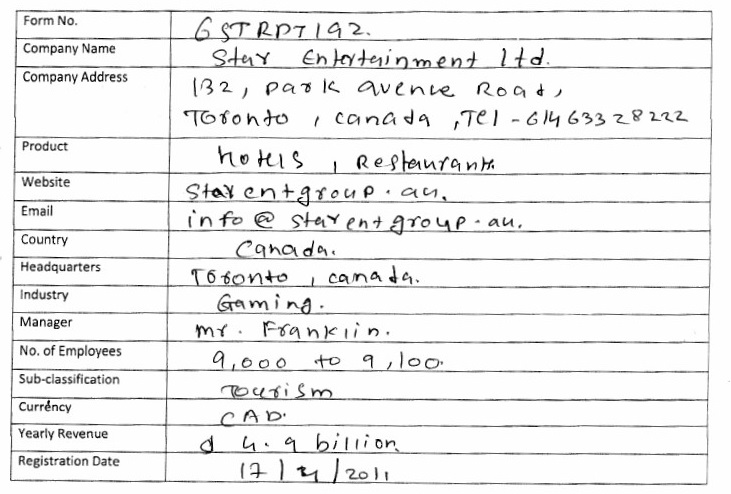 Form No. GSTRPT192.
Company Name Star Entertainment ltd.
Company Address 132, park avenue Road,
Toronto, canada, Tel - 61463328222
Product hotels, Restaurants.
Website starentgroup.au.
Email info@starentgroup.au.
Country Canada.
Headquarters Toronto, canada.
Industry Gaming.
Manager mr. Franklin.
No. of Employees 9,000 to 9,100.
Sub-classification Tourism
Currency CAD.
Yearly Revenue 4.9 billion
Registration Date 17/ /2011